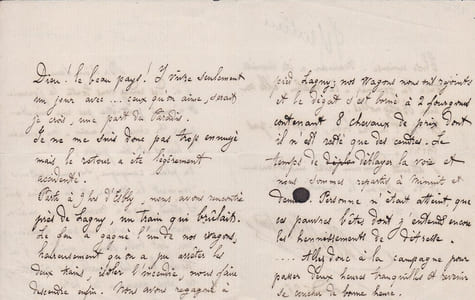 Dieu! le beau pays! Y vivre seulement
un jour avec ... ceux qu'on aime, serait
je crois, une part du Paradis.
Je ne me suis donc pas trop ennuyé
mais le retour a été légèrement
accidenté.
Partis à 9 hrs d'Esbly, nous avons rencontré
près de Lagny, un train qui brûlait.
Le feu a gagné l'un de nos wagons,
heureusement qu'on a pu arrêter les
deux trains, isoler l'incendie, nous faire
descendre enfin. Nous avons regagné à
pied Lagny; nos wagons nous ont rejoints
et le dégât s'est borné à 2 fourgons
contenant 8 chevaux de prix dont
il n'est resté que des cendres. Le
temps de déblayer la voie et
nous sommes repartis à minuit et
demi. Personne n'était atteint, que
ces pauvres bêtes dont j'entends encore
les hennissements de détresse.
.... Allez donc à la campagne pour
passer deux heures tranquilles et revenir
se coucher de bonne heure.